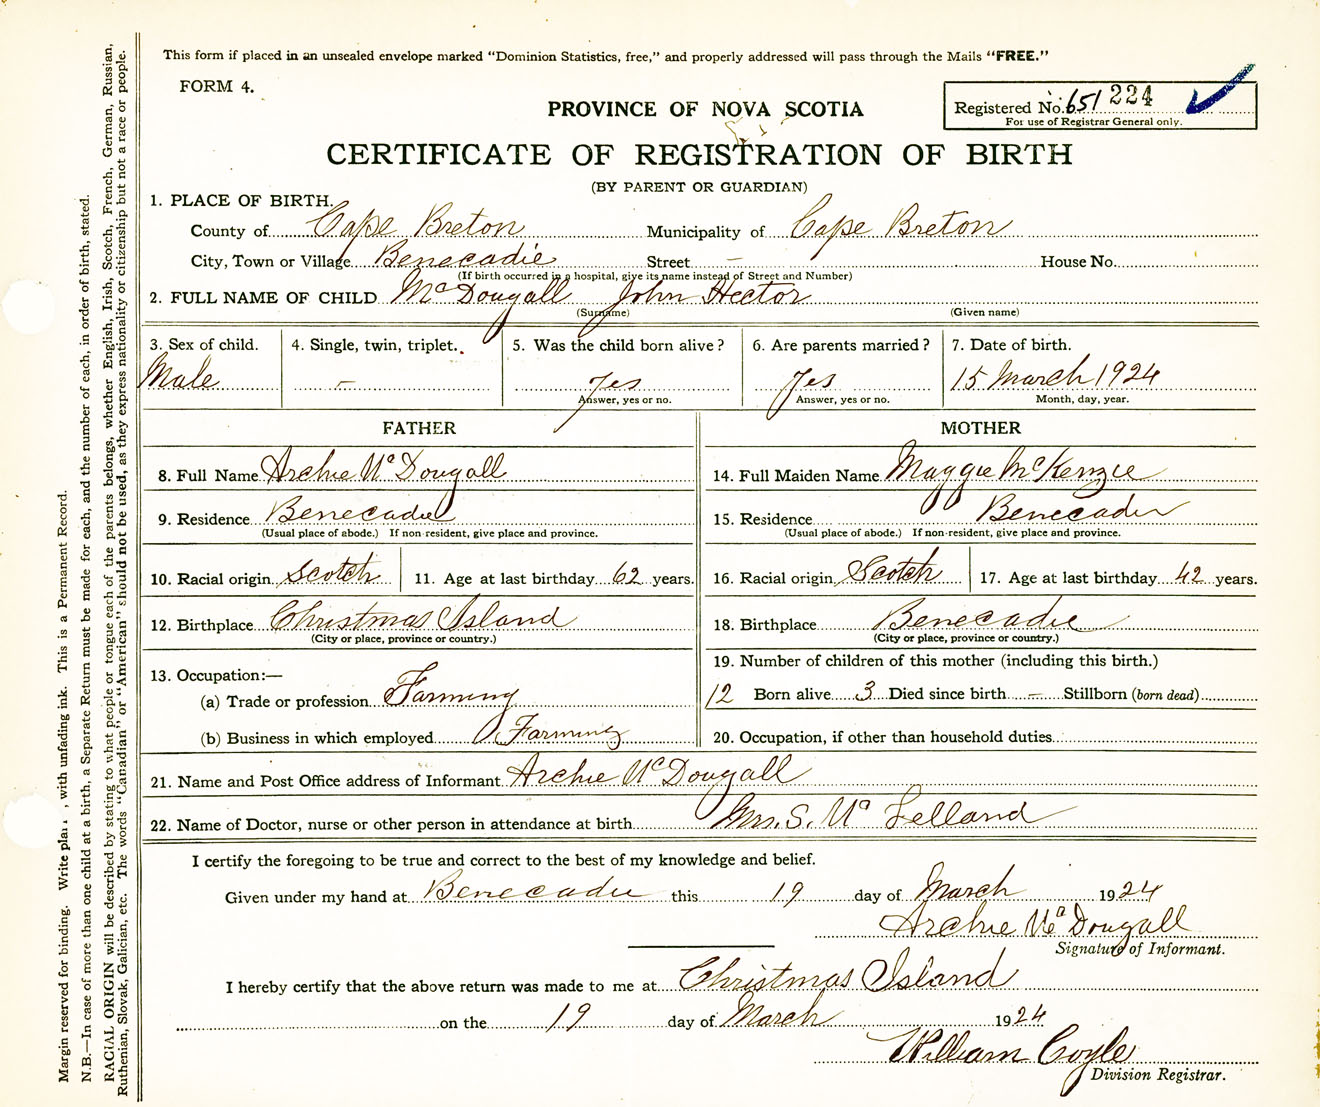 This form if placed in an unsealed envelope marked "Dominion Statistics, free," and properly addressed will pass through the Mails "FREE."
FORM 4.
Registered No. 651 224
For use of Registrar General only.
PROVINCE OF NOVA SCOTIA
CERTIFICATE OF REGISTRATION OF BIRTH
(BY PARENT OR GUARDIAN)
1. PLACE OF BIRTH.
County of Cape Breton Municipality of Cape Breton
City, Town or Village Benecadie Street – House No.
(If birth occurred in a hospital, give its name instead of Street and Number)
2. FULL NAME OF CHILD McDougall John Hector
(Surname) (Given name)
3. Sex of child. 4. Single, twin, triplet. 5. Was the child born alive? 6. Are parents married? 7. Date of birth.
Male – Yes Yes 15 March 1924
Answer, yes or no. Answer, yes or no. Month, day, year.
FATHER MOTHER
8. Full Name Archie McDougall 14. Full Maiden Name Maggie McKenzie
9. Residence Benecadie 15. Residence Benecadie
(Usual place of abode.) If non-resident, give place and province. (Usual place of abode.) If non-resident, give place and province.
10. Racial origin Scotch 11. Age at last birthday 62 years. 16. Racial origin Scotch 17. Age at last birthday 42 years.
12. Birthplace Christmas Island 18. Birthplace Benecadie
(City or place, province or country.) (City or place, province or country.)
13. Occupation:— 19. Number of children of this mother (including this birth.)
(a) Trade or profession Farming 12 Born alive 3 Died since birth – Stillborn (born dead)
(b) Business in which employed Farming 20. Occupation, if other than household duties
21. Name and Post Office address of Informant Archie McDougall
22. Name of Doctor, nurse or other person in attendance at birth Mrs. S. Mc Lelland
I certify the foregoing to be true and correct to the best of my knowledge and belief.
Given under my hand at Benecadie this 19 day of March 1924
Archie McDougall
Signature of Informant.
I hereby certify that the above return was made to me at Christmas Island
on the 19 day of March 1924
William Coyle
Division Registrar.
Margin reserved for binding. Write , with unfading ink. This is a Permanent Record.
N.B.—In case of more than one child at a birth, a Separate Return must be made for each, and the number of each, in order of birth, stated.
RACIAL ORIGIN will be described by stating to what people or tongue each of the parents belongs, whether English, Irish, Scotch, French, German, Russian,
Ruthenian, Slovak, Galician, etc. The words "Canadian" or "American" should not be used, as they express nationality or citizenship but not a race or people.